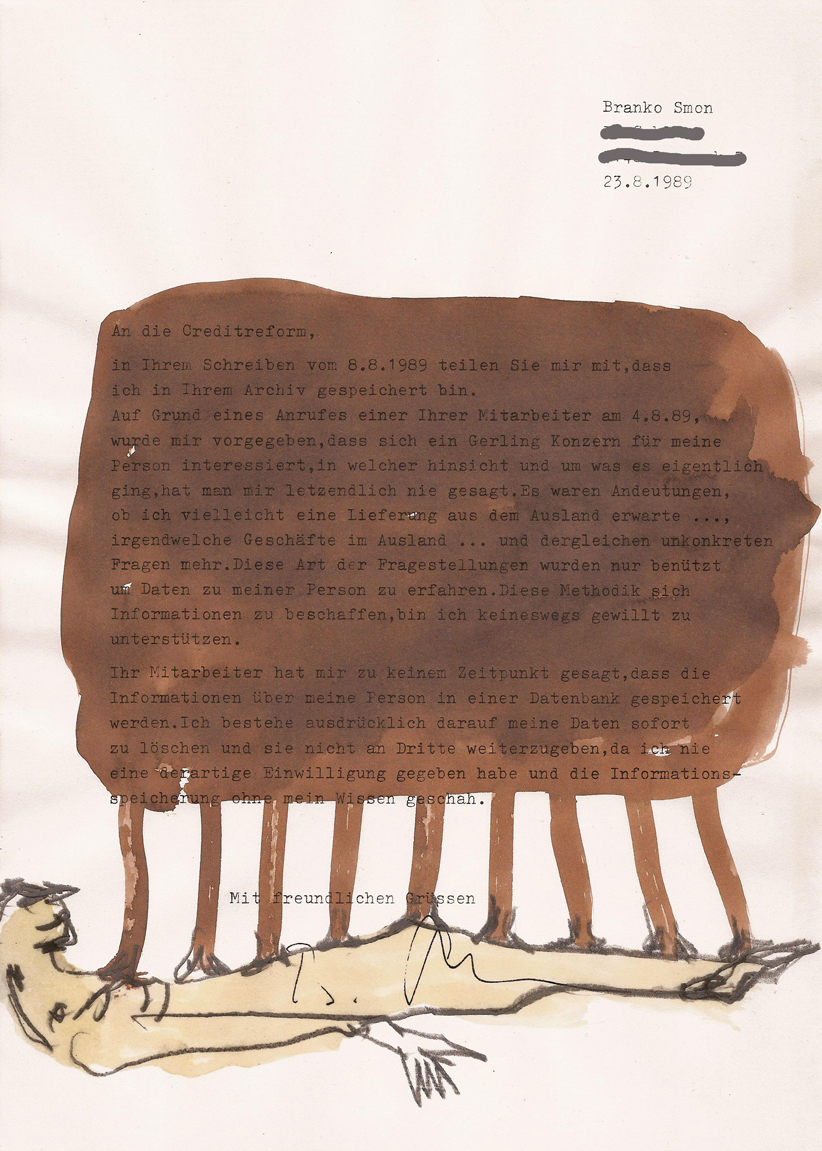 Branko Smon
23.8.1989
An die Creditreform,
in Ihrem Schreiben vom 8.8.1989 teilen Sie mir mit,dass
ich in Ihrem Archiv gespeichert bin.
Auf Grund eines Anrufes einer Ihrer Mitarbeiter am 4.8.89,
wurde mir vorgegeben,dass sich ein Gerling Konzern für meine
Person interessiert,in welcher hinsicht und um was es eigentlich
ging,hat man mir letzendlich nie gesagt.Es waren Andeutungen,
ob ich vielleicht eine Lieferung aus dem Ausland erwarte ...,
irgendwelche Geschäfte im Ausland ... und dergleichen unkonkreten
Fragen mehr.Diese Art der Fragestellungen wurden nur benützt
um Daten zu meiner Person zu erfahren.Diese Methodik sich
Informationen zu beschaffen,bin ich keineswegs gewillt zu
unterstützen.
Ihr Mitarbeiter hat mir zu keinem Zeitpunkt gesagt,dass die
Informationen über meine Person in einer Datenbank gespeichert
werden.Ich bestehe ausdrücklich darauf meine Daten sofort
zu löschen und sie nicht an Dritte weiterzugeben,da ich nie
eine derartige Einwilligung gegeben habe und die Informations-
speicherung ohne mein Wissen geschah.
Mit freundlichen Grüssen